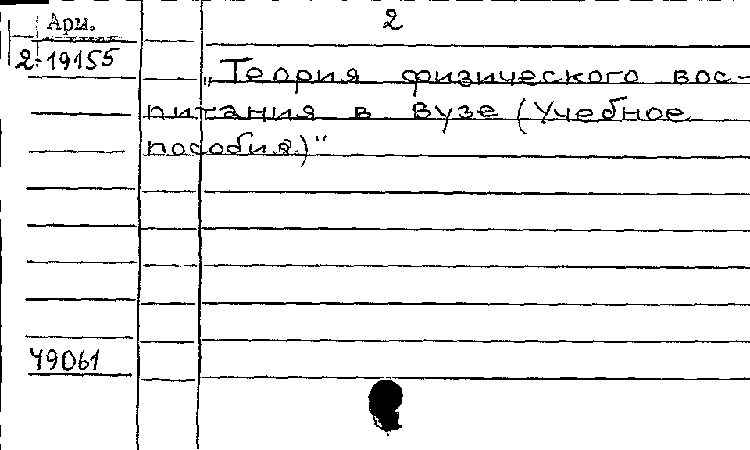 Арм.
2
2-19155
„Теория физического вос-
питания в вузе (Учебное
пособия)“
49061